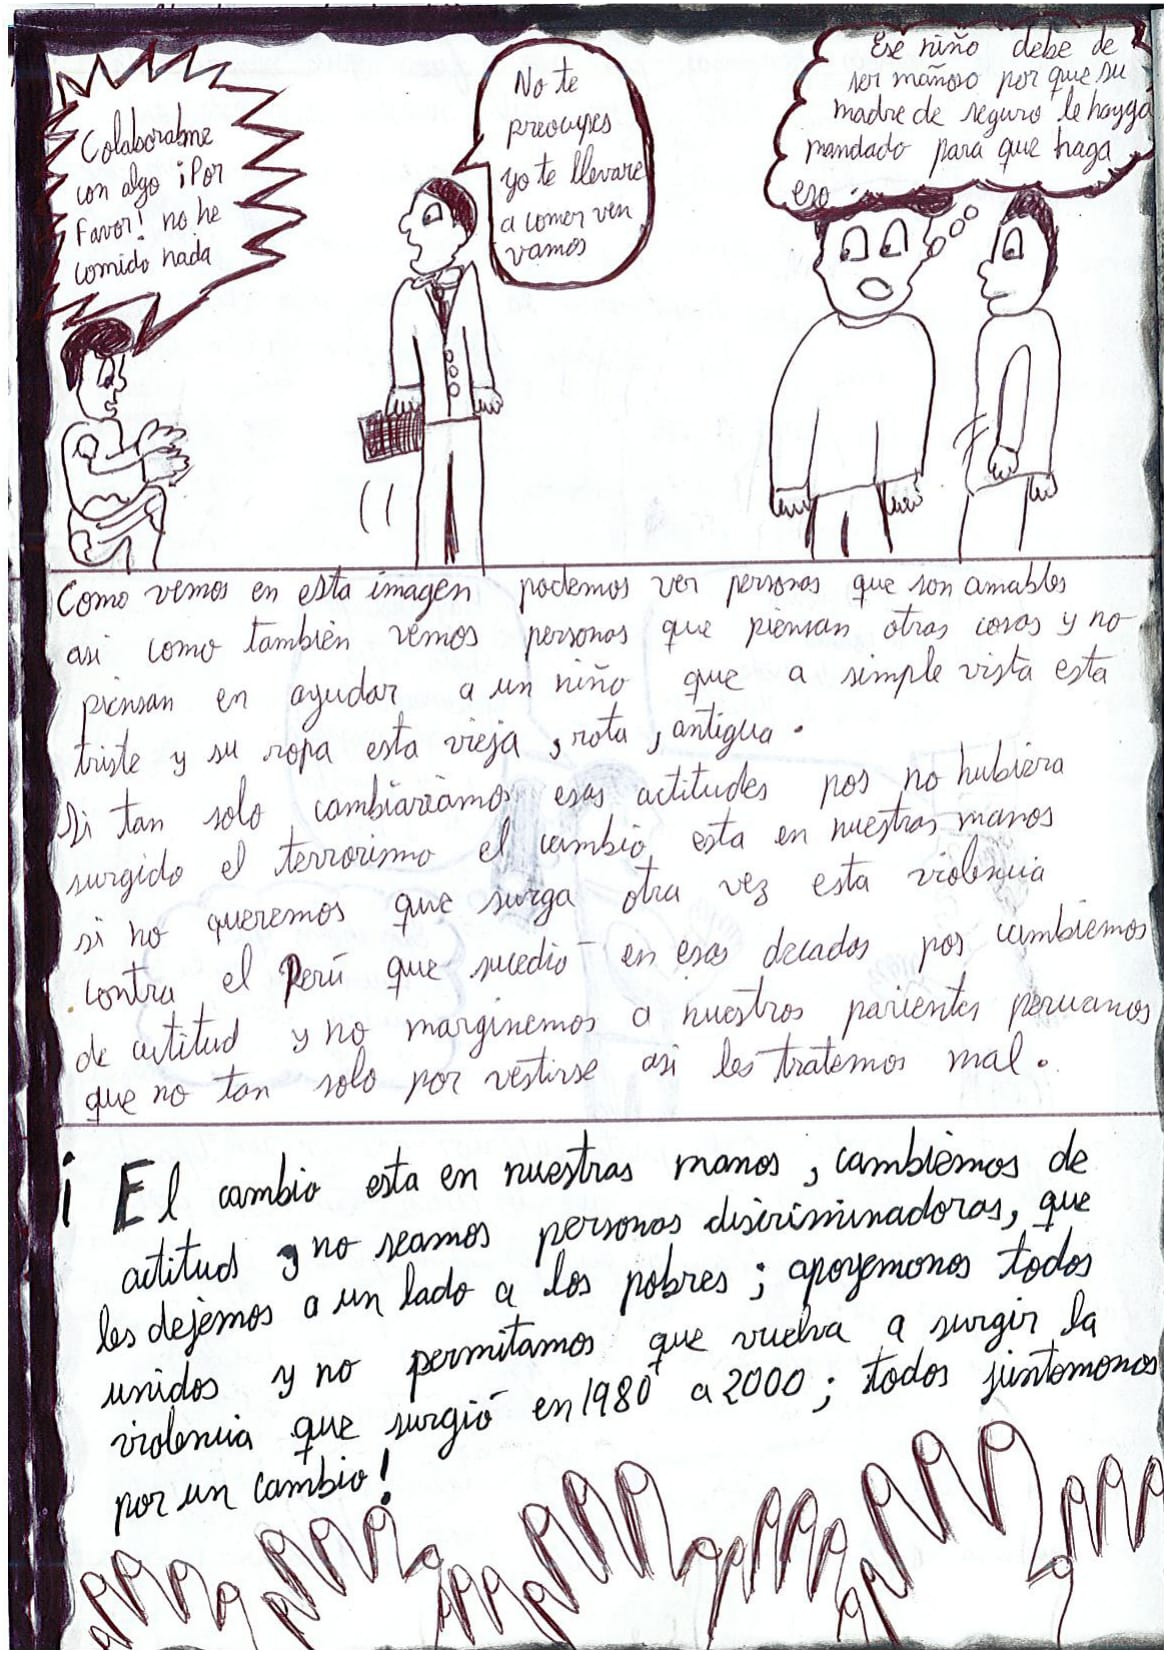 Colaborabme
con algo ¡Por
Favor! no he
comido nada
No te
preocupes
yo te llevare
a comer ven
vamos
Ese niño debe de
ser mañoso por que su
madre de seguro le hayga
mandado para que haga
eso.
Como vemos en esta imagen podemos ver personas que son amables
asi como también vemos personas que piensan otras cosas y no
piensan en ayudar a un niño que a simple vista esta
triste y su ropa esta vieja, rota, antigua.
Si tan solo cambiaríamos esas actitudes pos no hubiera
surgido el terrorismo el cambio esta en nuestras manos
si no queremos que surga otra vez esta violencia
contra el Perú que sucedió en esas decadas pos cambiemos
de actitud y no marginemos a nuestros parientes peruanos
que no tan solo por vestirse asi les tratemos mal.
¡ El cambio esta en nuestras manos, cambiémos de
actitud y no seamos personas discriminadoras, que
les dejémos a un lado a los pobres; apoyemonos todos
unidos y no permitamos que vuelva a surgir la
violencia que surgió en 1980 a 2000; todos juntomonos
por un cambio!